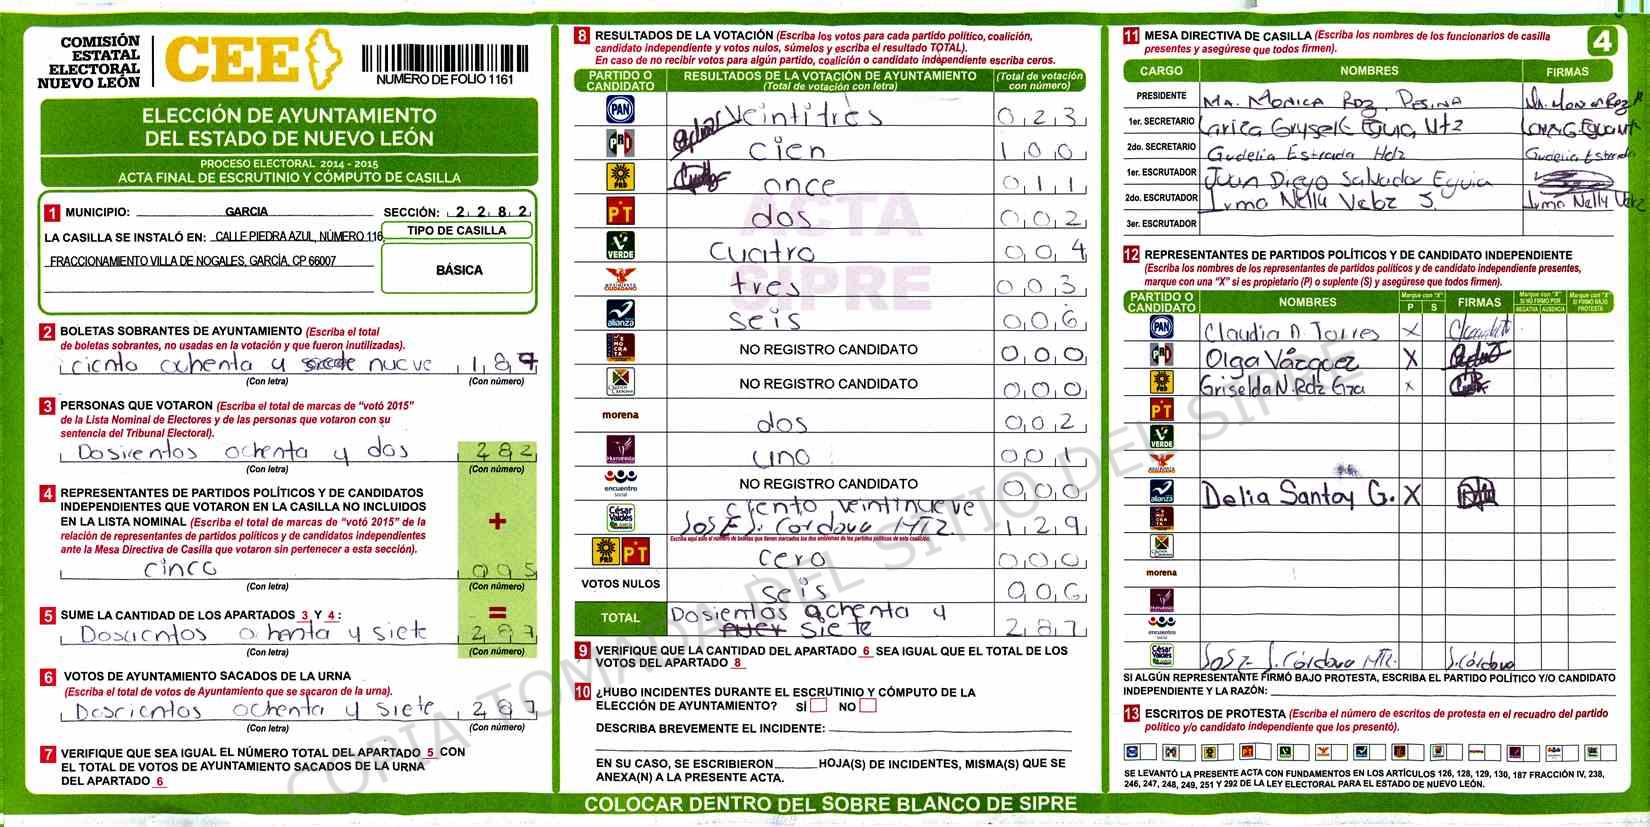 COMISIÓN
ESTATAL
ELECTORAL
NUEVO LEÓN
CEE
NUMERO DE FOLIO 1161
ELECCIÓN DE AYUNTAMIENTO
DEL ESTADO DE NUEVO LEÓN
PROCESO ELECTORAL 2014 - 2015
ACTA FINAL DE ESCRUTINIO Y CÓMPUTO DE CASILLA
1 MUNICIPIO: GARCIA SECCIÓN: 2 2 8 2
LA CASILLA SE INSTALÓ EN: CALLE PIEDRA AZUL, NÚMERO 116,
FRACCIONAMIENTO VILLA DE NOGALES, GARCÍA, CP 66007
TIPO DE CASILLA
BÁSICA
2 BOLETAS SOBRANTES DE AYUNTAMIENTO (Escriba el total
de boletas sobrantes, no usadas en la votación y que fueron inutilizadas).
ciento ochenta y nueve 1 8 9
(Con letra) (Con número)
3 PERSONAS QUE VOTARON (Escriba el total de marcas de "votó 2015"
de la Lista Nominal de Electores y de las personas que votaron con su
sentencia del Tribunal Electoral).
Dosientos ochenta y dos 2 8 2
(Con letra) (Con número)
4 REPRESENTANTES DE PARTIDOS POLÍTICOS Y DE CANDIDATOS
INDEPENDIENTES QUE VOTARON EN LA CASILLA NO INCLUIDOS
EN LA LISTA NOMINAL (Escriba el total de marcas de "votó 2015" de la
relación de representantes de partidos políticos y de candidatos independientes
ante la Mesa Directiva de Casilla que votaron sin pertenecer a esta sección).
+
cinco 0 0 5
(Con letra) (Con número)
5 SUME LA CANTIDAD DE LOS APARTADOS 3 Y 4 : =
Doscientos ochenta y siete 2 8 7
(Con letra) (Con número)
6 VOTOS DE AYUNTAMIENTO SACADOS DE LA URNA
(Escriba el total de votos de Ayuntamiento que se sacaron de la urna).
Doscientos ochenta y siete 2 8 7
(Con letra) (Con número)
7 VERIFIQUE QUE SEA IGUAL EL NÚMERO TOTAL DEL APARTADO 5 CON
EL TOTAL DE VOTOS DE AYUNTAMIENTO SACADOS DE LA URNA
DEL APARTADO 6
8 RESULTADOS DE LA VOTACIÓN (Escriba los votos para cada partido político, coalición,
candidato independiente y votos nulos, súmelos y escriba el resultado TOTAL).
En caso de no recibir votos para algún partido, coalición o candidato independiente escriba ceros.
PARTIDO O CANDIDATO RESULTADOS DE LA VOTACIÓN DE AYUNTAMIENTO (Total de votación con letra) (Total de votación con número)
PAN veintitres 0 2 3
PRD cien 1 0 0
PRD once 0 1 1
PT dos 0 0 2
VERDE cuatro 0 0 4
MOVIMIENTO CIUDADANO tres 0 0 3
alianza seis 0 0 6
NO REGISTRO CANDIDATO 0 0 0
NO REGISTRO CANDIDATO 0 0 0
morena dos 0 0 2
Humanista uno 0 0 1
encuentro social NO REGISTRO CANDIDATO 0 0 0
ciento veintinueve
César Valdés José J. Córdova Mtz. 1 2 9
PRD PT cero 0 0 0
VOTOS NULOS seis 0 0 6
TOTAL Dosientos ochenta y
siete 2 8 7
ACTA
SIPRE
9 VERIFIQUE QUE LA CANTIDAD DEL APARTADO 6 SEA IGUAL QUE EL TOTAL DE LOS
VOTOS DEL APARTADO 8
10 ¿HUBO INCIDENTES DURANTE EL ESCRUTINIO Y CÓMPUTO DE LA
ELECCIÓN DE AYUNTAMIENTO? SÍ NO
DESCRIBA BREVEMENTE EL INCIDENTE:
EN SU CASO, SE ESCRIBIERON HOJA(S) DE INCIDENTES, MISMA(S) QUE SE
ANEXA(N) A LA PRESENTE ACTA.
COLOCAR DENTRO DEL SOBRE BLANCO DE SIPRE
11 MESA DIRECTIVA DE CASILLA (Escriba los nombres de los funcionarios de casilla
presentes y asegúrese que todos firmen).
4
CARGO NOMBRES FIRMAS
PRESIDENTE Ma. Monica Rdz. Pesina
1er. SECRETARIO Lariza Grysell Eguia Utz
2do. SECRETARIO Gudelia Estrada Hdz Gudelia Estrada
1er. ESCRUTADOR Juan Diego Salvador Eguia
2do. ESCRUTADOR Irma Nelly Velaz S.
3er. ESCRUTADOR
12 REPRESENTANTES DE PARTIDOS POLÍTICOS Y DE CANDIDATO INDEPENDIENTE
(Escriba los nombres de los representantes de partidos políticos y de candidato independiente presentes,
marque con una "X" si es propietario (P) o suplente (S) y asegúrese que todos firmen).
PARTIDO O CANDIDATO NOMBRES Marque con "X" P S FIRMAS Marque con "X" SI NO FIRMÓ POR NEGATIVA AUSENCIA Marque con "X" SI FIRMÓ BAJO PROTESTA
PAN Claudia A. Torres X
PRD Olga Vázquez X
PRD Griselda N. Rdz Gza X
PT
VERDE
alianza Delia Santoy G. X
morena
Humanista
encuentro social
César Valdés José J. Córdova Mtz. J. Córdova
SI ALGÚN REPRESENTANTE FIRMÓ BAJO PROTESTA, ESCRIBA EL PARTIDO POLÍTICO Y/O CANDIDATO
INDEPENDIENTE Y LA RAZÓN:
13 ESCRITOS DE PROTESTA (Escriba el número de escritos de protesta en el recuadro del partido
político y/o candidato independiente que los presentó).
SE LEVANTÓ LA PRESENTE ACTA CON FUNDAMENTOS EN LOS ARTÍCULOS 126, 128, 129, 130, 187 FRACCIÓN IV, 238,
246, 247, 248, 249, 251 Y 292 DE LA LEY ELECTORAL PARA EL ESTADO DE NUEVO LEÓN.
COPIA TOMADA DEL SITIO DEL SIPRE